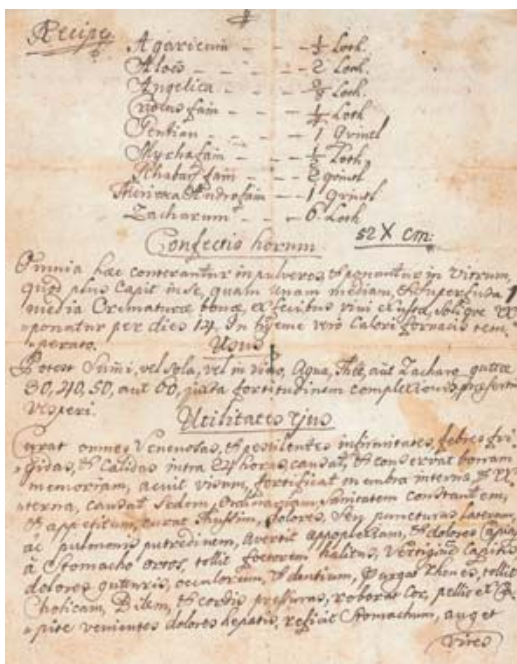 Recipe.
Agaricum - - - ½ Loth.
Aloës - - - 2 Loth.
Angelica - - Loth.
Crocus fain - - Loth
Gentian - - - 1 Qvintl
Myrhafain - - ½ Loth
Rhabar fain - - 2 qvintl
Theriaca Androfain - 1 Qvintl
Zacharum - - 6. Loth
Confectio horum 52 X cm:
Omnia haec conterantur in pulveres, & ponantur in Vitrum,
quod plus Capit in se, quam Unam mediam, & Superfusa 1
media Crematurae bonae, ex fecibus vini exusta, Solique
ponatur per dies 14. In hyeme verò Calori fornacis tem
perato.
Usus
Potest Sumi, vel sola, vel in vino, Aqua, Thèe, aut Zacharo guttae
30, 40, 50, aut 60, juxta fortitudinem complexionis, praesertim
Vesperi.
Utilitates ejus
Curat omnes Venenosas, & pestilentes infirmitates, febres fri
gidas, & Calidas intra 24 horas, & conservat bonam
memoriam, acuit visum, fortificat membra interna, &
terna, Sedem, Ordinariam, Sanitatem constantem,
& appetitum, curat tussim, dolores, Seu puncturas laterum,
ac pulmonis putredinem, avertit appoplexiam, & dolores Capitis
à Stomacho ortos, tollit foetorem halitus, Vertiginem Capitis
dolores gutturis, occulorum, & dentium, purgat Rhenes, tollit
Cholicam, Bilem, & cordis pressuras, roborat Cor, pellit
pite venientes dolores hepatis, reficit Stomachum, auget
Vires